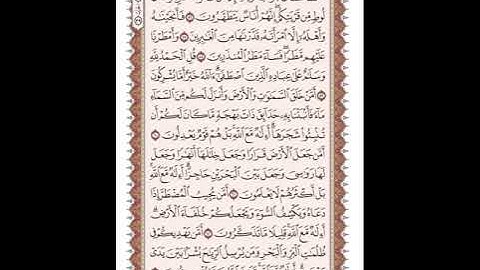 لُوطٍ مِّن قَرْيَتِكُمْ إِنَّهُمْ أُنَاسٌ يَتَطَهَّرُونَ ۝ فَأَنجَيْنَٰهُ
وَأَهْلَهُۥٓ إِلَّا ٱمْرَأَتَهُۥ قَدَّرْنَٰهَا مِنَ ٱلْغَٰبِرِينَ ۝ وَأَمْطَرْنَا
عَلَيْهِم مَّطَرًا فَسَآءَ مَطَرُ ٱلْمُنذَرِينَ ۝ قُلِ ٱلْحَمْدُ لِلَّهِ
وَسَلَٰمٌ عَلَىٰ عِبَادِهِ ٱلَّذِينَ ٱصْطَفَىٰٓ ءَآللَّهُ خَيْرٌ أَمَّا يُشْرِكُونَ
۝ أَمَّنْ خَلَقَ ٱلسَّمَٰوَٰتِ وَٱلْأَرْضَ وَأَنزَلَ لَكُم مِّنَ ٱلسَّمَآءِ
مَآءً فَأَنۢبَتْنَا بِهِۦ حَدَآئِقَ ذَاتَ بَهْجَةٍ مَّا كَانَ لَكُمْ أَن
تُنۢبِتُوا۟ شَجَرَهَآ أَءِلَٰهٌ مَّعَ ٱللَّهِ بَلْ هُمْ قَوْمٌ يَعْدِلُونَ ۝
أَمَّن جَعَلَ ٱلْأَرْضَ قَرَارًا وَجَعَلَ خِلَٰلَهَآ أَنْهَٰرًا وَجَعَلَ
لَهَا رَوَٰسِىَ وَجَعَلَ بَيْنَ ٱلْبَحْرَيْنِ حَاجِزًا أَءِلَٰهٌ مَّعَ ٱللَّهِ
بَلْ أَكْثَرُهُمْ لَا يَعْلَمُونَ ۝ أَمَّن يُجِيبُ ٱلْمُضْطَرَّ إِذَا
دَعَاهُ وَيَكْشِفُ ٱلسُّوٓءَ وَيَجْعَلُكُمْ خُلَفَآءَ ٱلْأَرْضِ
أَءِلَٰهٌ مَّعَ ٱللَّهِ قَلِيلًا مَّا تَذَكَّرُونَ ۝ أَمَّن يَهْدِيكُمْ فِى
ظُلُمَٰتِ ٱلْبَرِّ وَٱلْبَحْرِ وَمَن يُرْسِلُ ٱلرِّيَٰحَ بُشْرًۢا بَيْنَ يَدَىْ